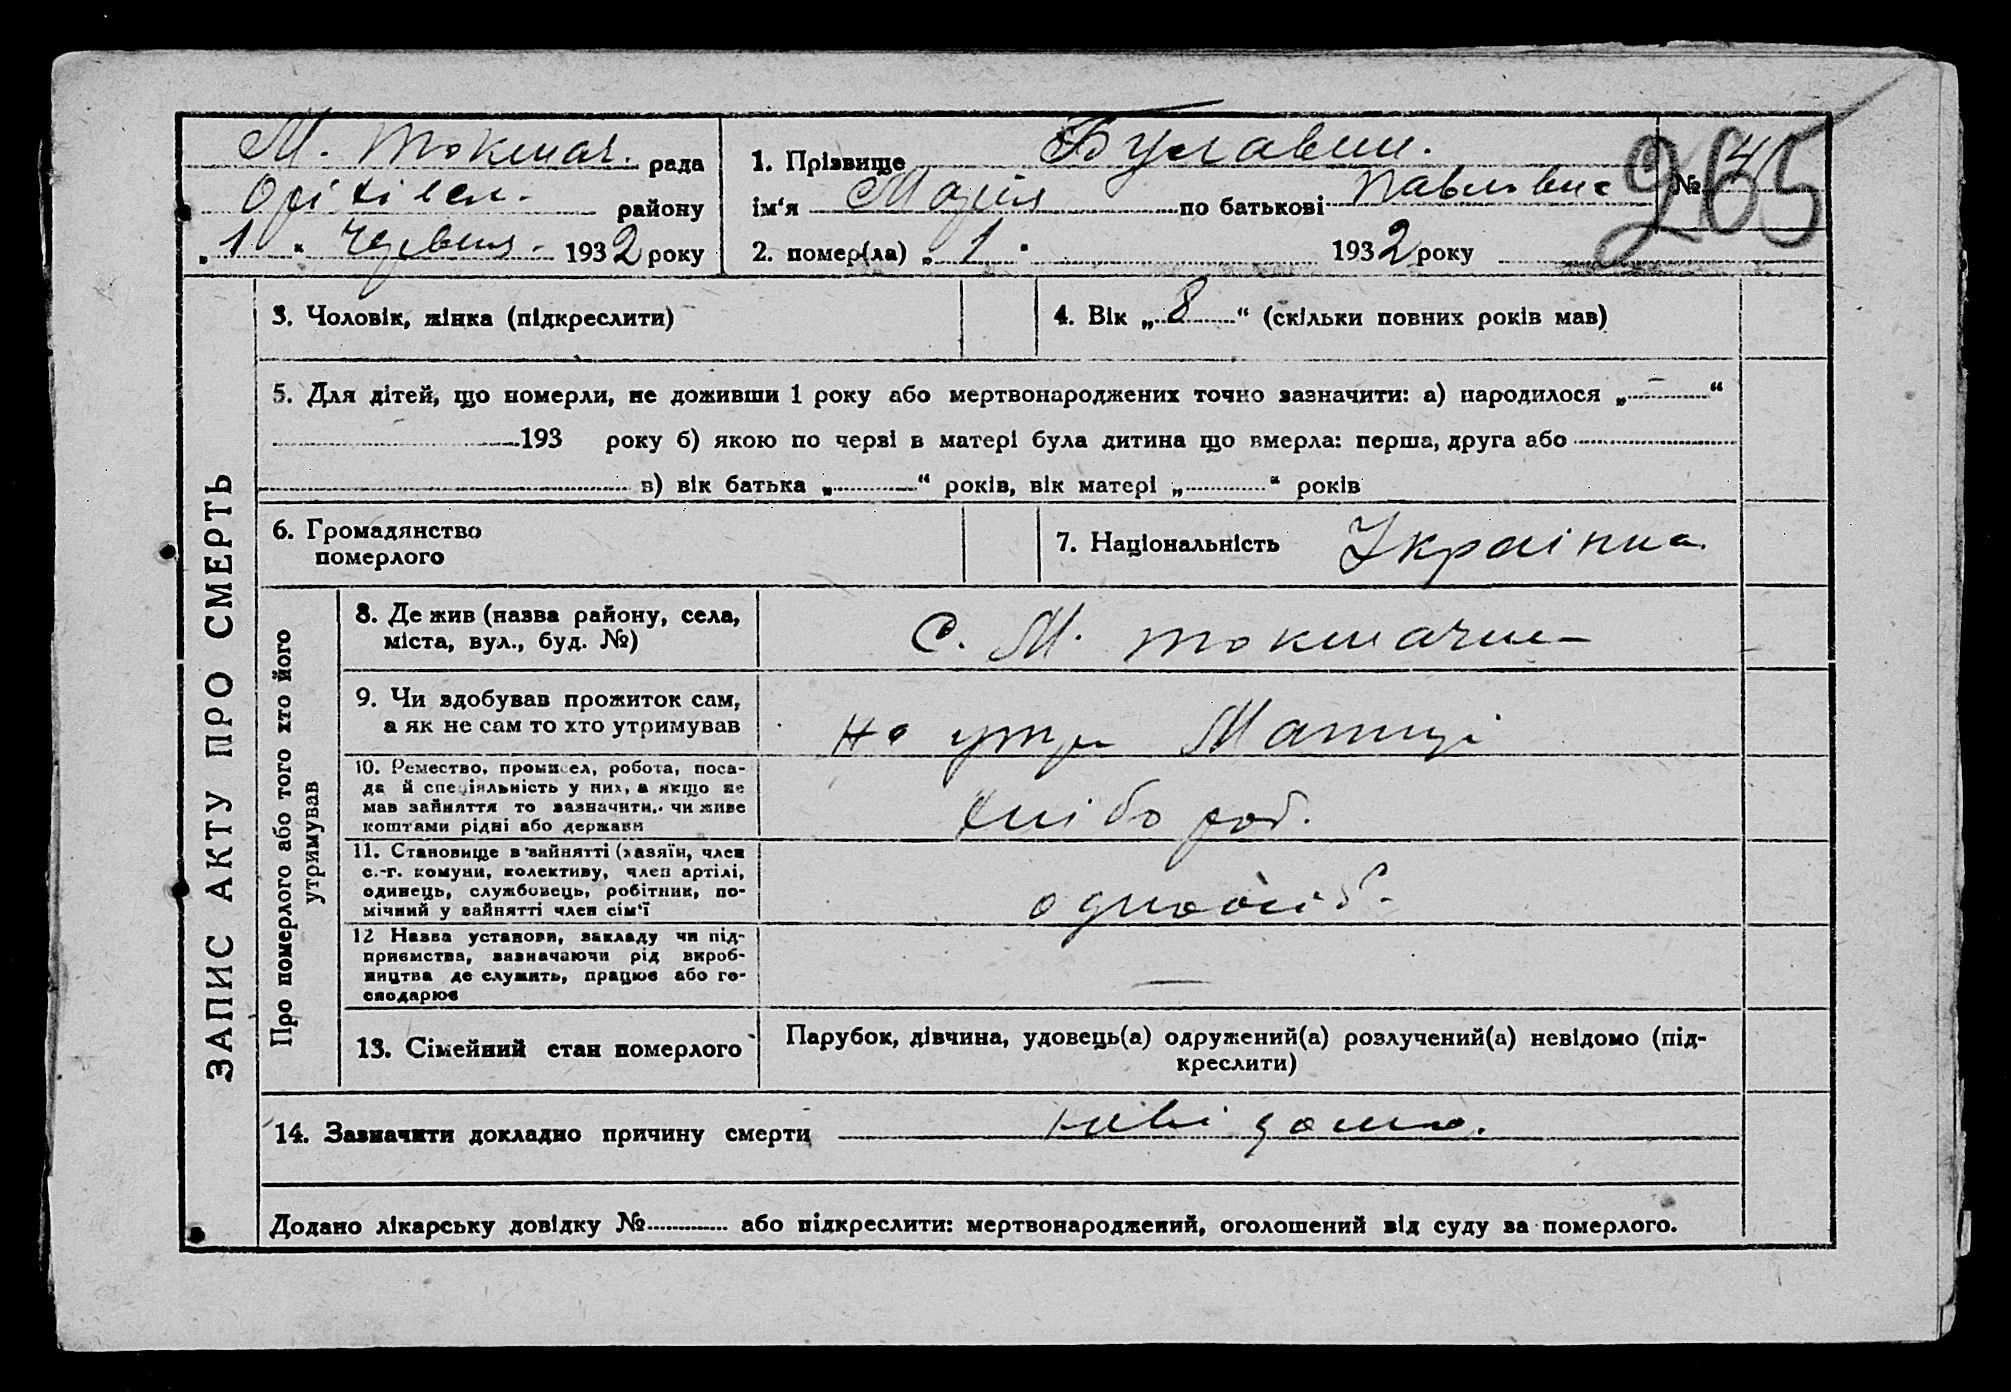 М. Токмач. рада
Оріхівсь. району
„1" Червня 1932 року
1. Прізвище Булавин.
№
265
ім'я Марія по батькові Павловна
2. помер(ла) „1" 1932 року
ЗАПИС АКТУ ПРО СМЕРТЬ
3. Чоловік, жінка (підкреслити)
4. Вік „8" (скільки повних років мав)
5. Для дітей, що померли, не доживши 1 року або мертвонароджених точно зазначити: а) народилося „ – "
193 року б) якою по черзі в матері була дитина що вмерла: перша, друга або
в) вік батька „ " років, вік матері „ " років
6. Громадянство
померлого
7. Національність Українка
Про померлого або того хто його
утримував
8. Де жив (назва району, села,
міста, вул., буд. №)
с. М. Токмачка
9. Чи здобував прожиток сам,
а як не сам то хто утримував
на утри Матері
10. Ремество, промисел, робота, поса-
да й спеціяльність у них, а якщо не
мав зайняття то зазначити, чи живе
коштами рідні або держави
хлібороб.
11. Становище в зайнятті (хазяїн, член
с.-г. комуни, колективу, член артілі,
одинець, службовець, робітник, по-
мічний у зайнятті член сім'ї
одноосіб.
12 Назва установи, закладу чи під-
приємства, зазначаючи рід вироб-
ництва де служить, працює або го-
сподарює
—
13. Сімейний стан померлого
Парубок, дівчина, удовець(а) одружений(а) розлучений(а) невідомо (під-
креслити)
14. Зазначити докладно причину смерти невідомо.
Додано лікарську довідку № або підкреслити: мертвонароджений, оголошений від суду за померлого.